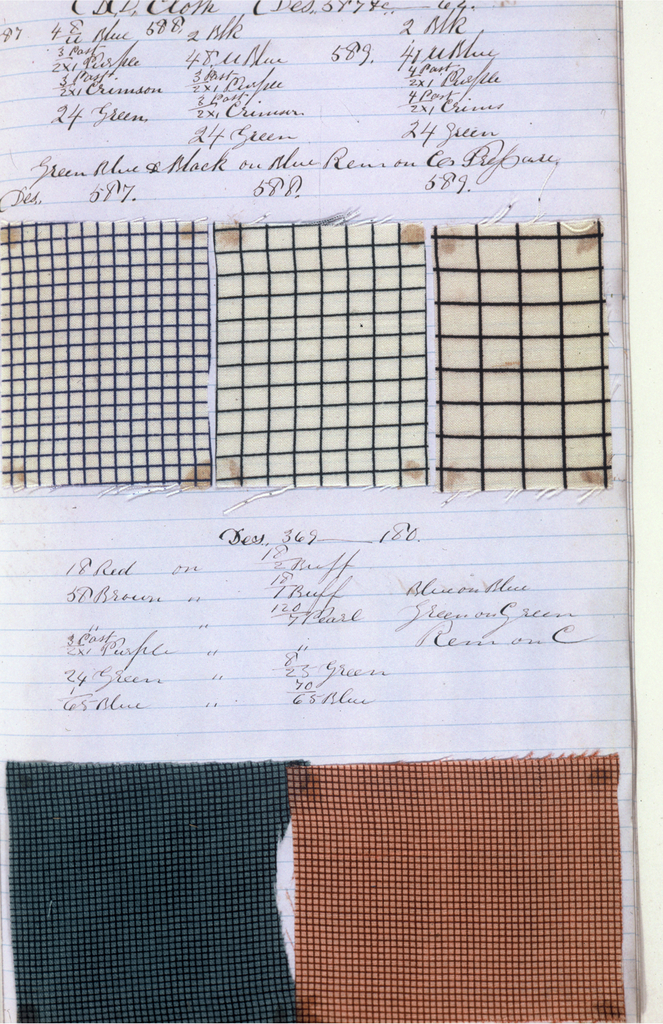 Cloth Des. 587
87 4 8/U Blue 588. 2 Blk 2 Blk
3 Past 2x1 Purple 48 U Blue 589. 41 U Blue
3 Past 2x1 Crimson 3 Past 2x1 Purple 4 Past 2x1 Purple
24 Green 3 Past 2x1 Crimson 4 Past 2x1 Crims
24 Green 24 Green
Green Blue & Black on Blue Rem on Cos Prepare
Des. 587. 588. 589.
Des. 369 — 180.
18 Red on 18/2 Buff
58 Brown " 18/1 Buff Blue on Blue
" " 120/7 Pearl Green on Green
3 Past 2x1 Purple " " Rem on C
24 Green " 8/25 Green
1/65 Blue " 70/65 Blue